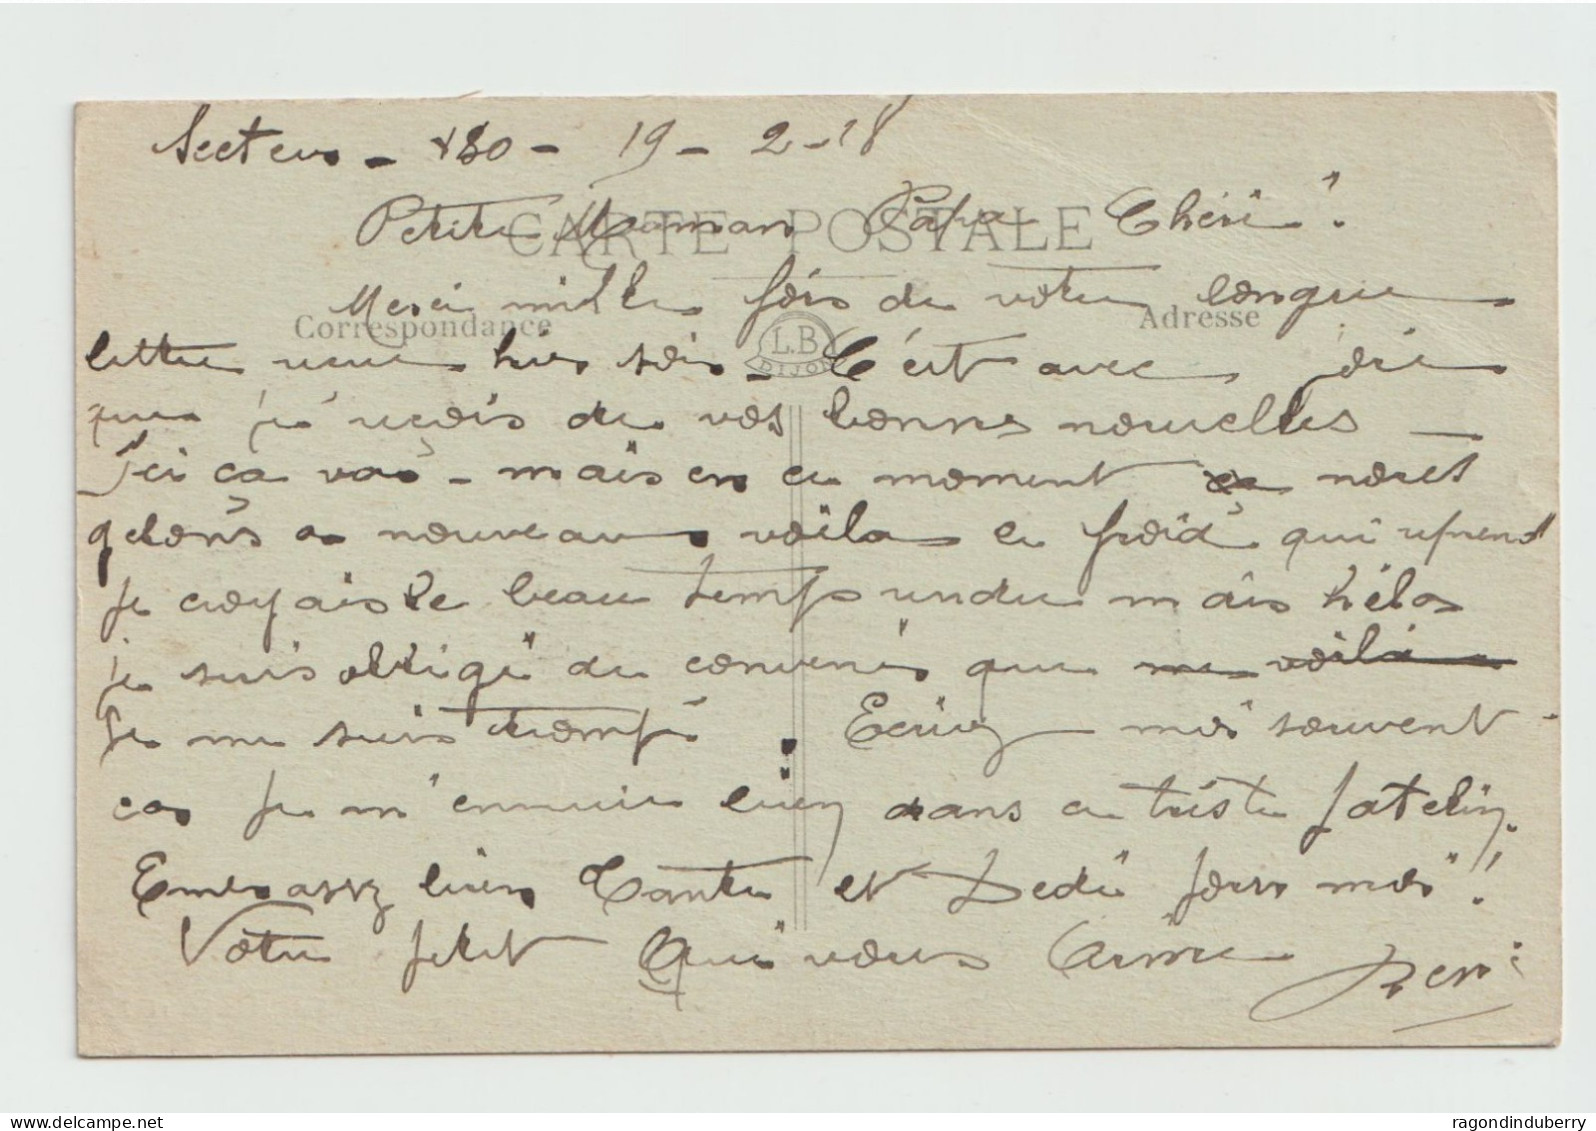 Secteur - 180 - 19 - 2 - 18
CARTE POSTALE
Petite Maman Papa Chéri".
Merci mille fois de votre longue
Correspondance
Adresse
L.B
DIJON
lettre reçue hier soir - C'est avec joie
que j'ai reçois de vos bonnes nouvelles -
Ici ça va - mais en ce moment nous
gelons a nouveau voila le froid qui reprend
je croyais le beau temps rendu mais hélas
je suis obligé de convenir que me voilà
Je me suis trompé. Ecrivez moi souvent
car je m'ennuie bien dans ce triste patelin.
Embrassez bien Tante et Dédé pour moi!
Votre petit Qui vous Aime
René
ragondinduberry
delcampe.net